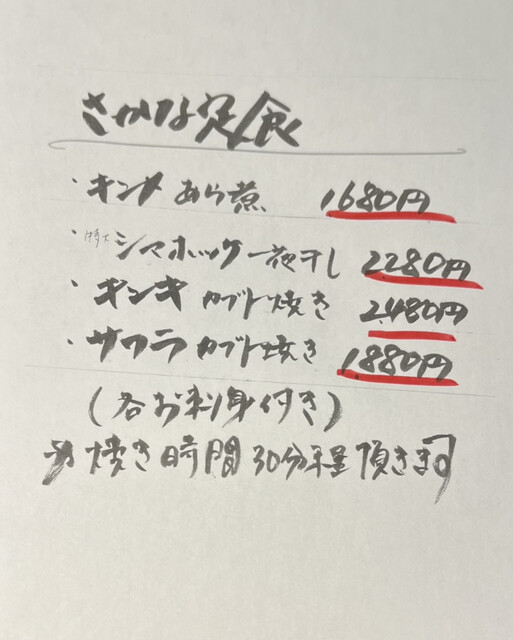 さかな定食
・キンメ あら煮 1680円
・特大シマホッケ一夜干し 2280円
・キンキ カブト焼き 2480円
・サワラ カブト焼き 1880円
(各お刺身付き)
※焼き時間30分程 頂きます